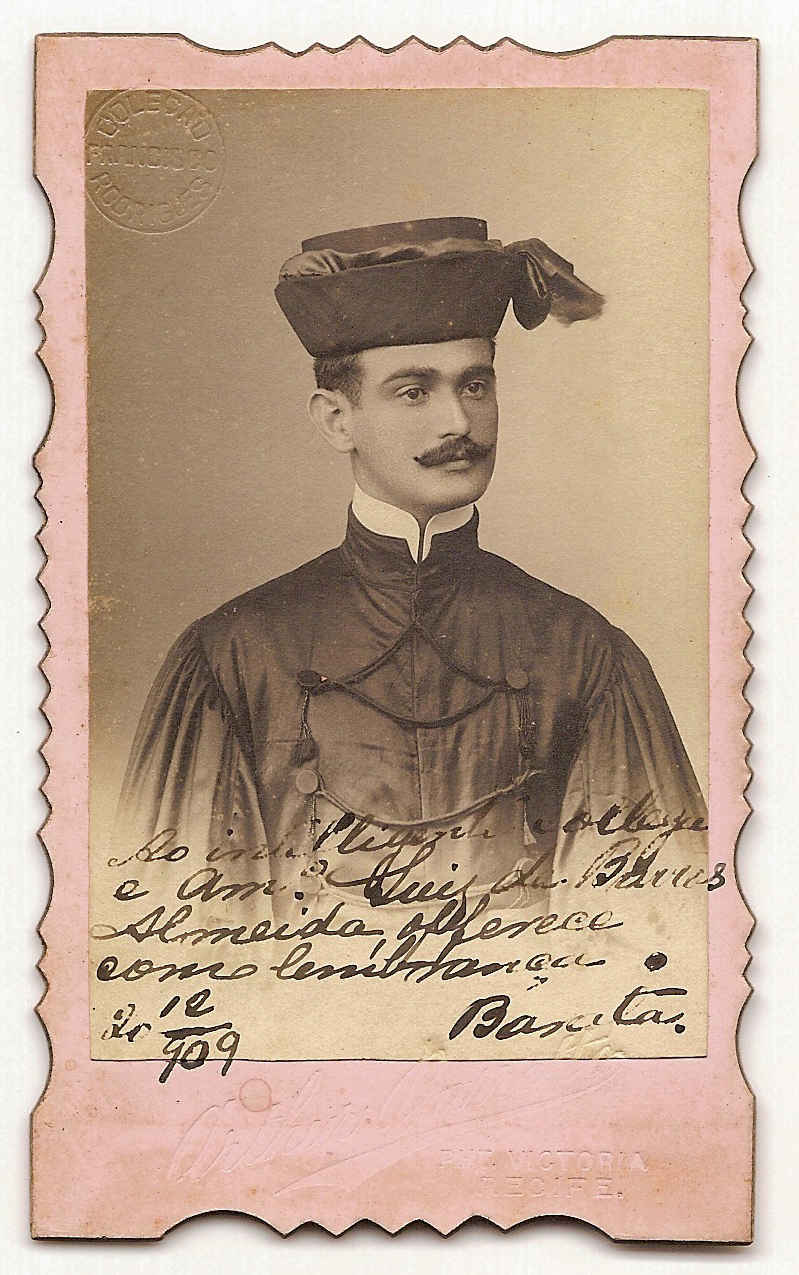 COLEÇÃO
FRANCISCO
RODRIGUES
Ao intelligente collega
e Amº Luiz de Barros
Almeida, offerece
como lembrança o
Barata.
20 12/909
RUE VICTORIA
RECIFE.